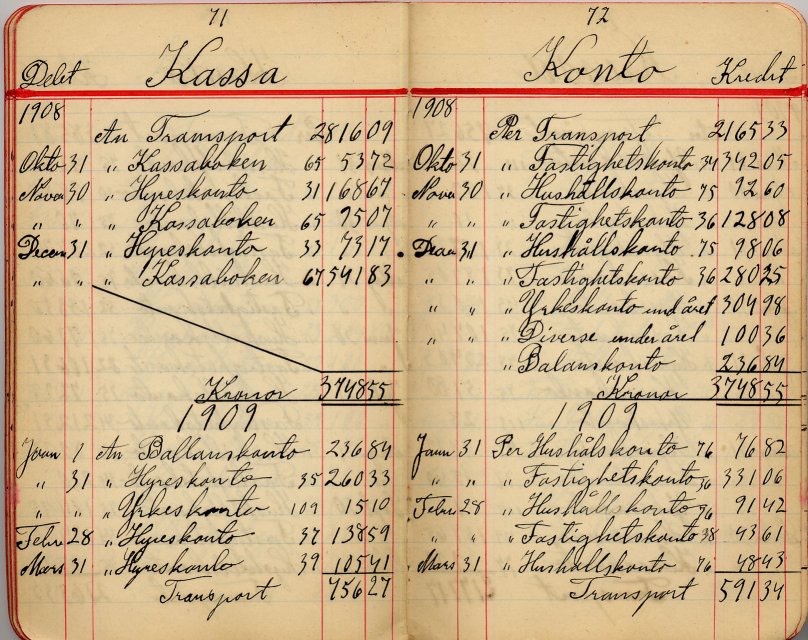 71
Debet Kassa
1908
An Transport 2816 09
Okto 31 " Kassaboken 65 53 72
Nove 30 " Hyreskonto 31 168 67
" " " Kassaboken 65 95 07
Decem 31 " Hyreskonto 33 73 17
" " " Kassaboken 67 541 83
Kronor 3748 55
1909
Janu 1 An Ballanskonto 236 84
" 31 " Hyreskonto 35 260 33
" " Yrkeskonto 109 15 10
Febru 28 " Hyreskonto 37 138 59
Mars 31 " Hyreskonto 39 105 41
Transport 756 27
72
Konto Kredit
1908
Per Transport 2165 33
Okto 31 " Fastighetskonto 34 342 05
Nove 30 " Hushållskonto 75 92 60
" " " Fastighetskonto 36 128 08
31 " Hushållskonto 75 98 06
" " " Fastighetskonto 36 280 25
" " " Yrkeskonto und året 304 98
" " " Diverse under året 100 36
" Balanskonto 236 84
Kronor 3748 55
1909
Janu 31 Per Hushålskonto 76 76 82
" " Fastighetskonto 36 331 06
Febru 28 " Hushållskonto 76 91 42
" " " Fastighetskonto 38 43 61
Mars 31 " Hushallskonto 76 48 43
Transport 591 34